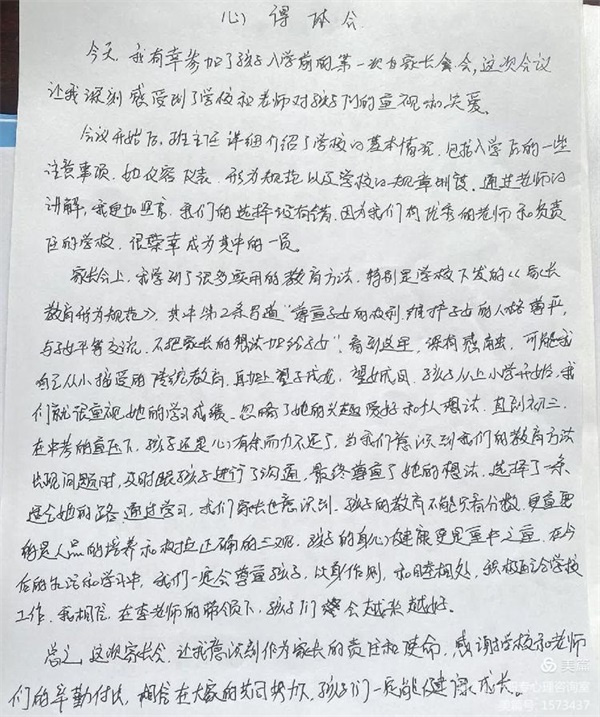 心得体会
今天,我有幸参加了孩子入学前的第一次家长会,这次会议
让我深刻感受到了学校和老师对孩子们的重视和关爱。
会议开始后,班主任详细介绍了学校的基本情况,包括入学后的一些
注意事项,如仪容仪表、行为规范以及学校的规章制度。通过老师的
讲解,我更加坚信,我们的选择没有错,因为我们有优秀的老师和负责
任的学校,很荣幸成为其中的一员。
家长会上,我学到了很多实用的教育方法,特别是学校下发的《家长
教育行为规范》,其中第2条写道“尊重子女的权利,维护子女的人格尊严,
与子女平等交流,不把家长的想法加给子女”,看到这里,深有感触,可能我
自己从小接受的传统教育,再加上望子成龙,望女成凤,孩子从上小学开始,我
们就很重视她的学习成绩,忽略了她的兴趣爱好和个人想法,直到初三,
在中考的重压下,孩子还是心有余而力不足了,当我们意识到我们的教育方法
出现问题时,及时跟孩子进行了沟通,最终尊重了她的想法,选择了一条
适合她的路,通过学习,我们家长也意识到,孩子的教育不能只看分数,更重要
的是人品的培养和树立正确的三观,孩子的身心健康更是重中之重,在今
后的生活和学习中,我们一定会尊重孩子,以身作则,和睦相处,积极配合学校
工作,我相信,在李老师的带领下,孩子们会越来越好。
总之,这次家长会,让我意识到作为家长的责任和使命,感谢学校和老师
们的辛勤付出,相信在大家的共同努力下,孩子们一定能健康成长。
美篇
心理咨询室
美篇号:1573437